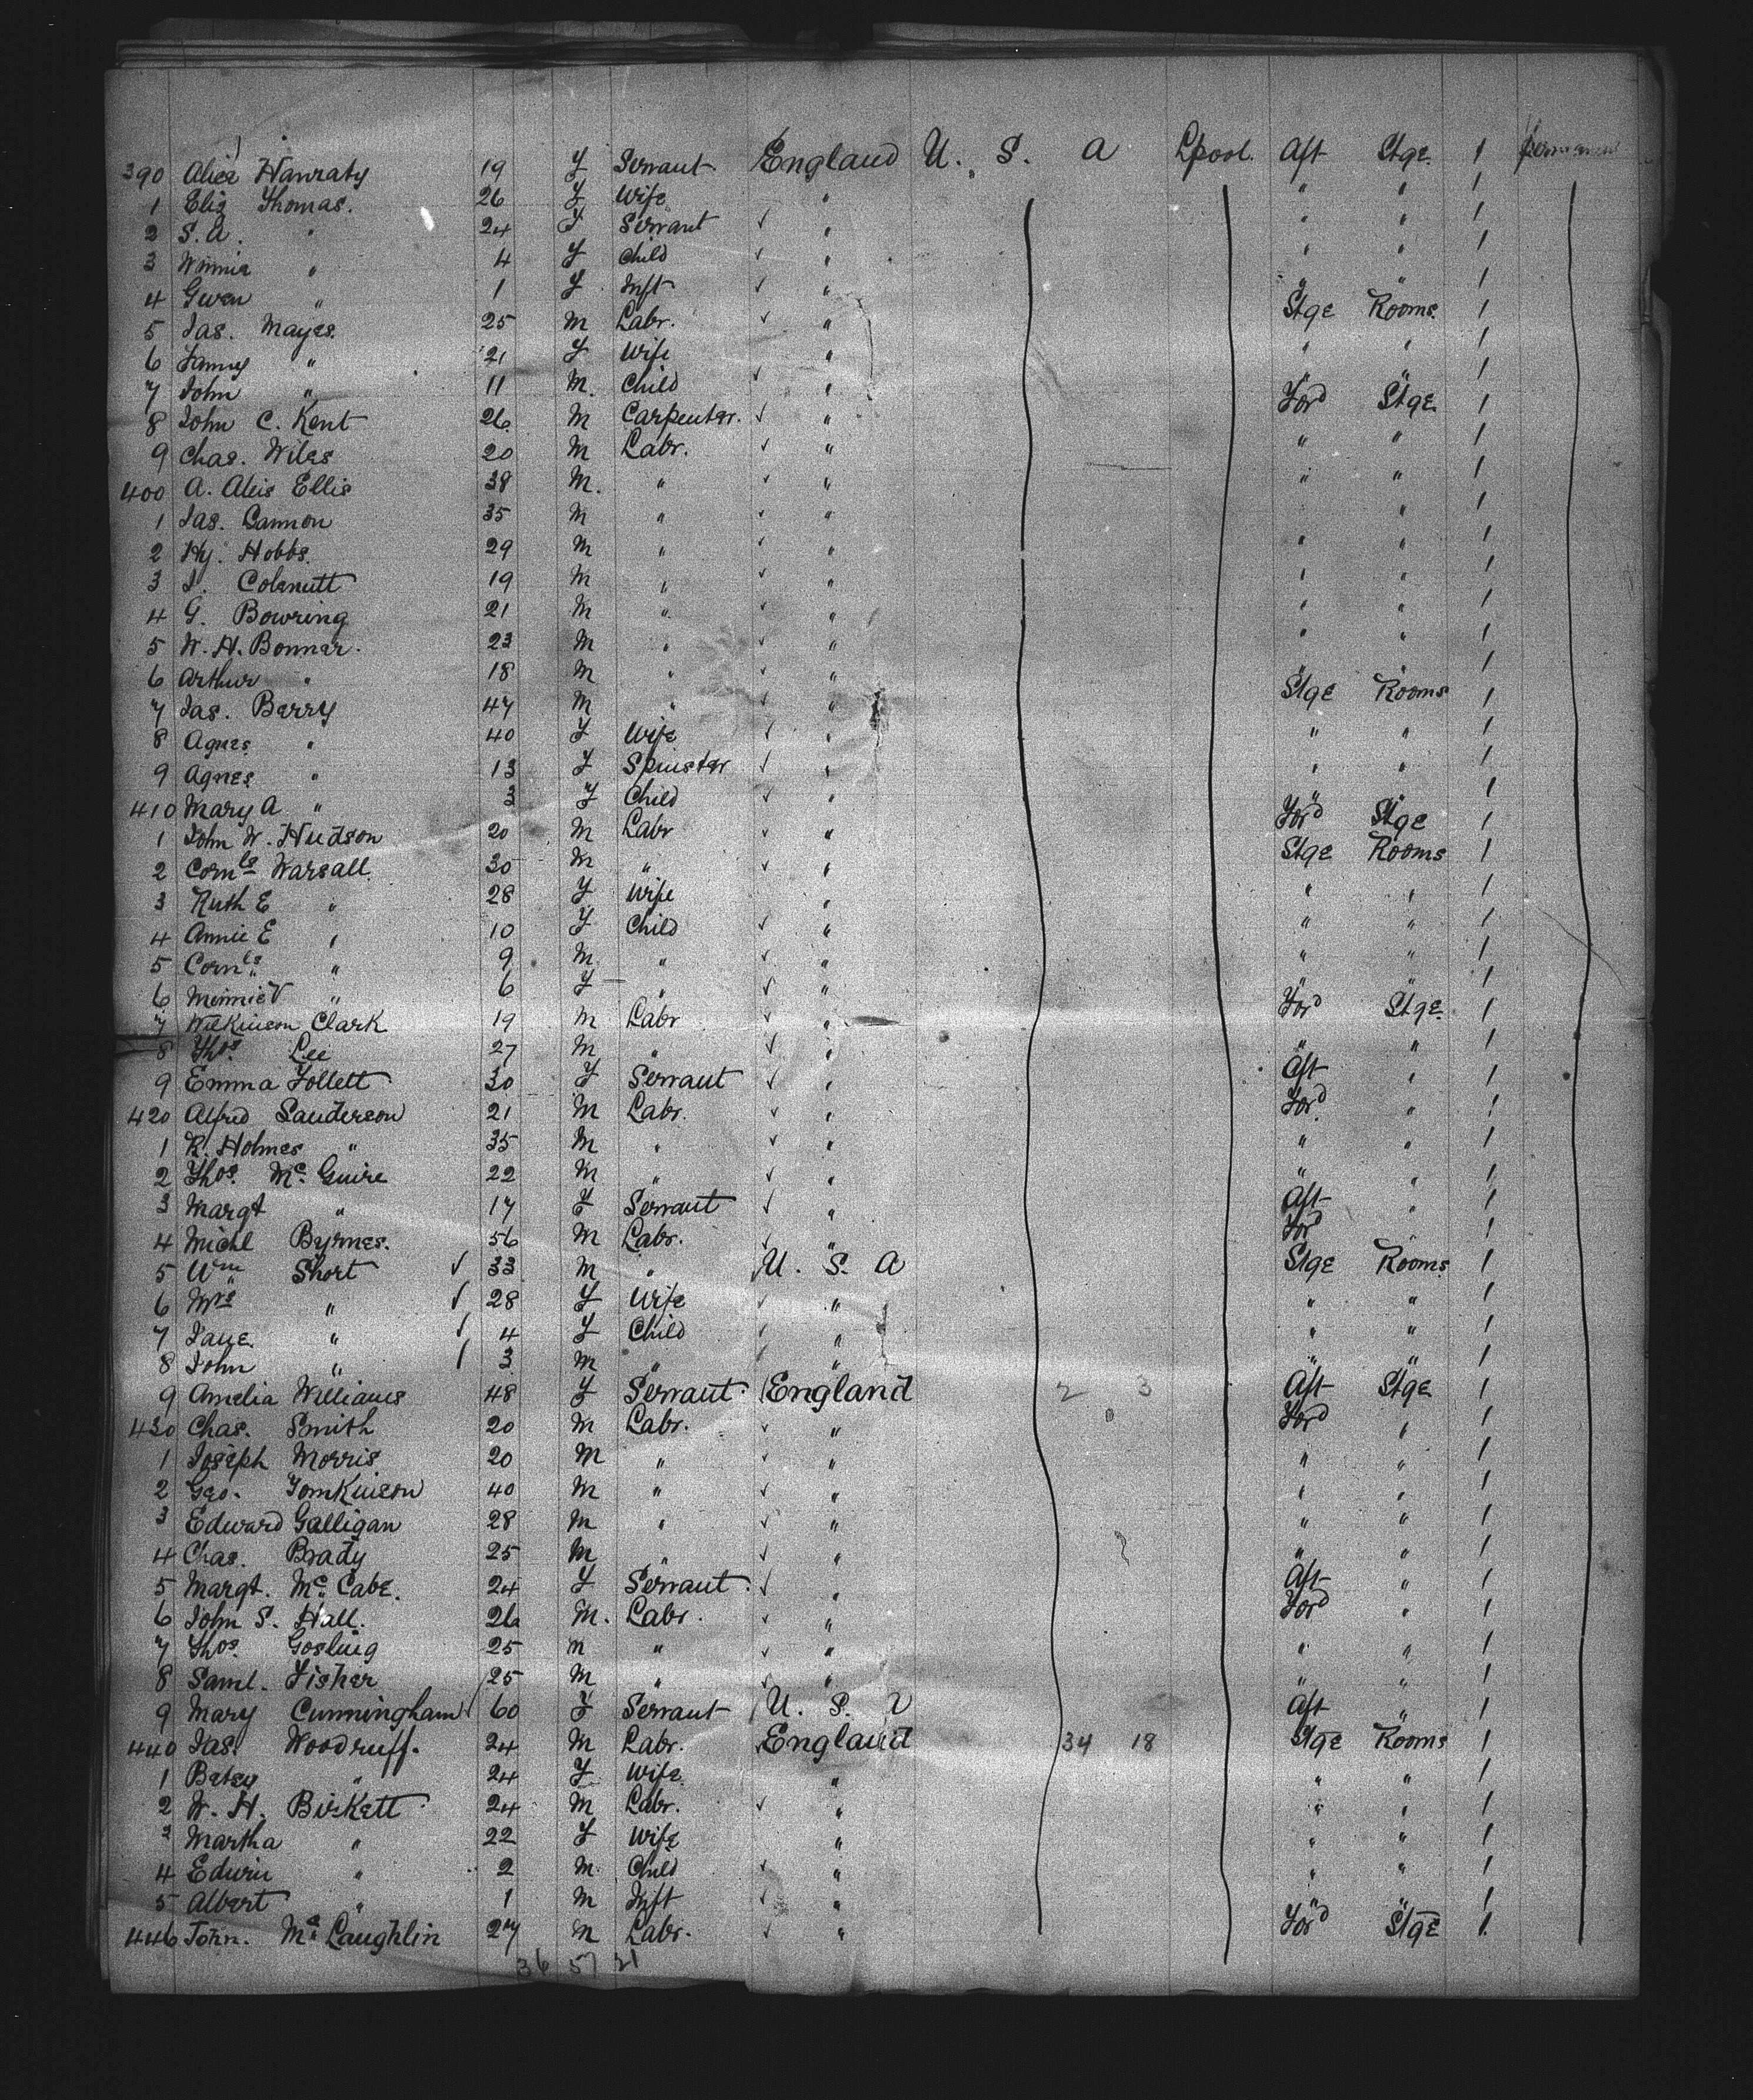 390 Alice Hanraty 19 F Servant England U. S. A Lpool. Aft Stge. 1 permanent
1 Eliz Thomas. 26 F Wife " " " 1
2 S. A. " 24 F Servant " " " 1
3 Winnie " 4 F Child " " " 1
4 Gwen " 1 F Inft " " " 1
5 Jas. Mayes. 25 M Labr. " Stge Rooms. 1
6 Fanny " 21 F Wife " " " 1
7 John " 11 M. Child " " " 1
8 John C. Kent 26. M Carpenter. " Ford Stge. 1
9 Chas. Wiles 20 M Labr. " " " 1
400 A. Ellis 38 M. " " " " 1
1 Jas. Cannon 35 M " " " 1
2 Hy. Hobbs. 29 M " " " " 1
3 J. Colenutt 19 M " " " " 1
4 G. Bowring 21 M " " " " 1
5 W. H. Bonner. 23 M " " " " 1
6 Arthur " 18 M " " " " 1
7 Jas. Berry 47 M " " Stge Rooms 1
8 Agnes " 40 F Wife " " " 1
9 Agnes " 13 F Spinster " " " 1
410 Mary A " 3 F Child " " " 1
1 John W. Hudson 20 M Labr " Ford Stge 1
2 Cornls Warsall. 30 M " " Stge Rooms 1
3 Ruth E " 28 F Wife " " " 1
4 Annie E " 10 F Child " " " 1
5 Cornls " 9 M. " " " " 1
6 Minnie V " 6 F " " " " 1
7 Wilkinson Clark 19 M Labr " Ford Stge. 1
8 Thos. Lee 27 M " " " " 1
9 Emma Follett 30 F Servant " Aft " 1
420 Alfred Sanderson 21 M Labr. " Ford. " 1
1 R. Holmes " 35 M " " " " 1
2 Thos. Mc. Guire 22 M " " " " 1
3 Margt " 17 F Servant " Aft " 1
4 Michl Byrnes. 56 M Labr. " Ford " 1
5 Wm Short 33 M " U. S. A Stge Rooms 1
6 Mrs " 28 F Wife " " " 1
7 Jane " 4 F Child " " " 1
8 John " 3 M " " " " 1
9 Amelia Williams 48 F Servant England 2 3 Aft Stge 1
430 Chas. Smith 20 M Labr. " Ford " 1
1 Joseph Morris 20 M " " " " 1
2 Geo. Tomkinson 40 M " " " " 1
3 Edward Galligan 28 M " " " " 1
4 Chas. Brady 25 M " " " " 1
5 Margt. Mc. Cabe. 24 F Servant. " Aft " 1
6 John S. Hall. 26 M. Labr. " Ford " 1
7 Thos. Gosling 25 M " " " " 1
8 Saml. Fisher 25 M " " " " 1
9 Mary Cunningham 60 F Servant U. S. A Aft " 1
440 Jas. Woodruff. 24 M Labr. England 34 18 Stge Rooms 1
1 Betsy " 24 F Wife " " " 1
2 W. H. Birkett 24 M Labr. " " " 1
3 Martha " 22 F Wife " " " 1
4 Edwin " 2 M. Child " " " 1
5 Albert " 1 M Inft " " " 1
446 John. Mc Laughlin 27 M Labr. " Ford Stge 1.
36 57 21